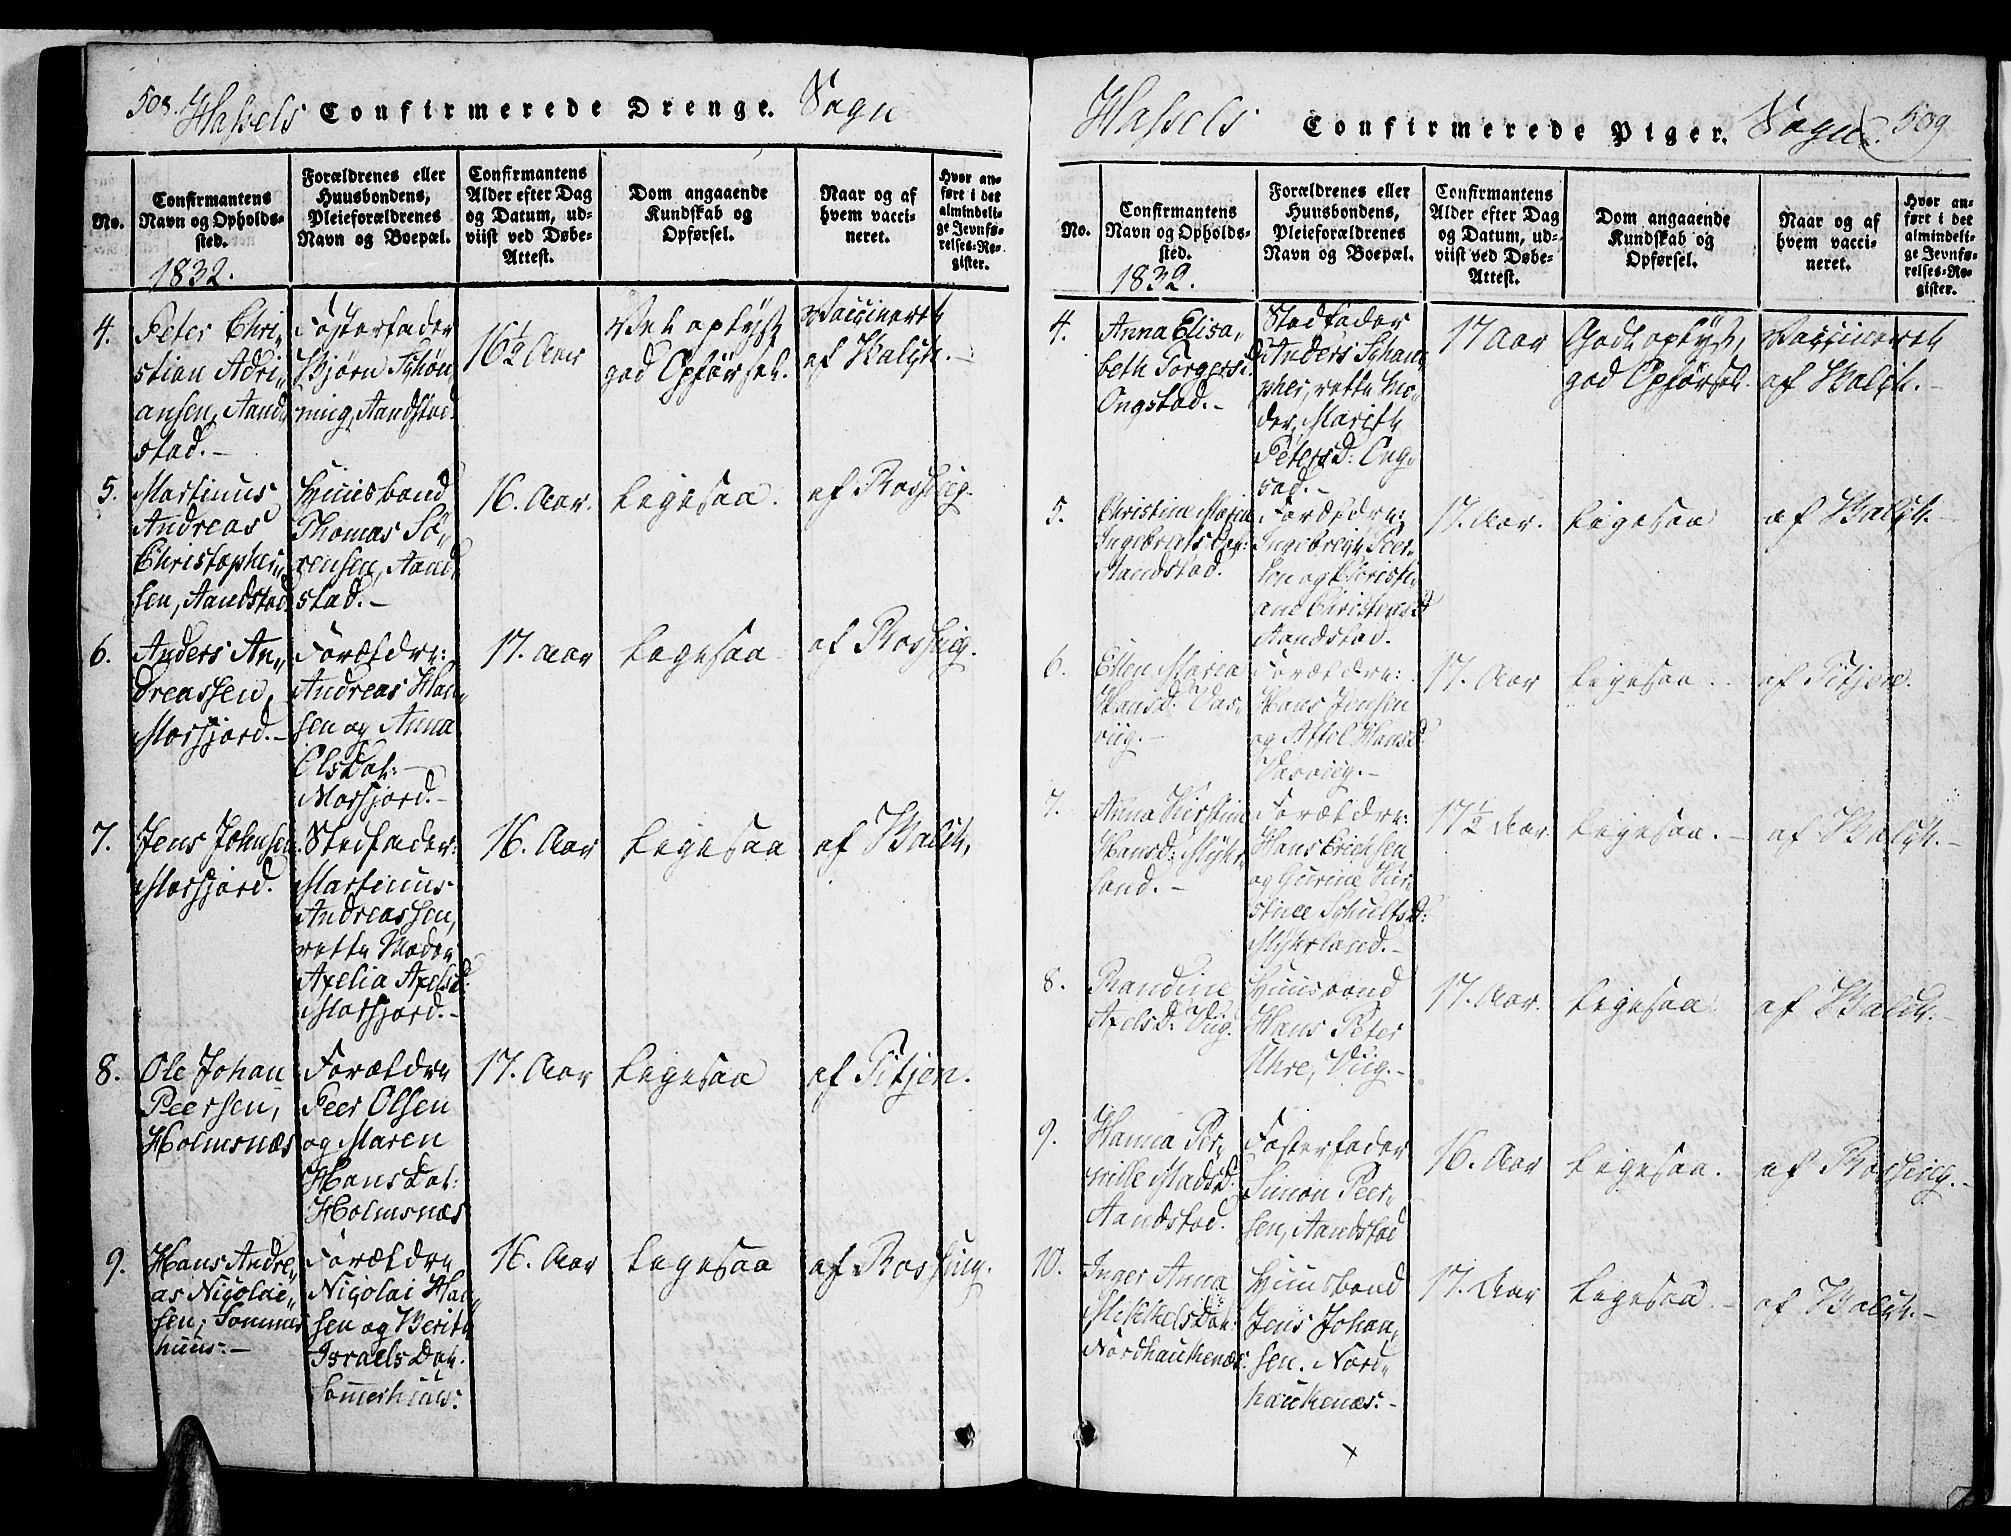 508. Hassels Confirmerede Drenge. Sogn
No.
Confirmantens
Navn og Opholds-
sted.
Forældrenes eller
Huusbondens,
Pleieforældrenes
Navn og Boepæl.
Confirmantens
Alder efter Dag
og Datum, ud-
viist ved Døbe-
Attest.
Dom angaaende
Kundskab og
Opførsel.
Naar og af
hvem vacci-
neret.
Hvor an-
ført i det
almindeli-
ge Jevnfø-
relses-Re-
gister.
1832.
4.
Peter Chri-
stian Adri-
ansen, Aand-
stad.-
Fosterfader
Bjørn Schøn-
ning, Aandstad
16½ Aar
Vel oplyst
god Opførsel.
Vaccineret
af Walsth.-
5.
Martinus
Andreas
Christopher-
sen, Aandstad
Huusbond
Thomas Sö-
rensen, Aand-
stad.-
16. Aar.
Ligesaa.
af Rosshug.
6.
Anders An-
dreassen,
Morfjord.-
Forældre:
Andreas Han-
sen og Anna
Olsdat:
Morfjord.-
17. Aar
Ligesaa
af Rosshug.
7.
Jens Johnsen
Morfjord.
Stedfader:
Martinus
Andreassen,
rette Moder
Axelia Axelsd:
Morfjord.-
16. Aar
Ligesaa
af
8.
Ole Johan
Peersen,
Holmsnæs
Forældre
Peer Olsen
og Maren
Hansdat:
Holmsnæs
17. Aar
Ligesaa
af Titjen.
9.
Hans Andre-
as Nicolai-
sen, Sommer
huus:-
Forældre
Nicolai Han-
sen og Berith
Israelsdat.
Sommerhuus:
16. Aar
Ligesaa
af Rosshug.
Hassels Confirmerede Piger. Sogn. 509
No.
Confirmantens
Navn og Opholds-
sted.
Forældrenes eller
Huusbondens,
Pleieforældrenes
Navn og Boepæl.
Confirmantens
Alder efter Dag
og Datum, ud-
viist ved Døbe-
Attest.
Dom angaaende
Kundskab og
Opførsel.
Naar og af
hvem vacci-
neret.
Hvor an-
ført i det
almindeli-
ge Jevnfø-
relses-Re-
gister.
1832.
4.
Anna Elisa-
beth Torgersd.
Ongstad.-
Stedfader
Anders Schan-
cher, rette Mo-
der, Marith
Petersd: Ong-
stad.-
17 Aar
Godt oplyst,
god Opførsel.
Vaccineret
af
5.
Christine Maria
Ingebretsdat:
Aandstad.
Forældre:
Ingebregt Peer-
sen og Christi-
ane Christensd
Aandstad.
17. Aar.
Ligesaa
af
6.
Ellen Maria
Hansd: Vas-
viig.-
Forældre:
Hans Jensen
og Axel Hansd:
Vasviig.-
17. Aar
Ligesaa.
af Titjen.
7.
Anna Kirstine
Hansd: Myhr-
land.-
Forældre:
Hans Erichsen
og Gurine Kir-
stine Schultsd:
Myhrland.-
17½ Aar.
Ligesaa.-
af
8.
Randine
Axelsd: Viig.
Huusbond
Hans Peter
Uhre, Viig.-
17. Aar.
Ligesaa.
af
9.
Hanna Per-
nille Madsd:
Aandstad.
Fosterfader
Simon Peer-
sen, Aandstad
16. Aar
Ligesaa.
af Rosshug.-
10.
Inger Anna
Mikkelsdat:
Nordhaukenæs.
Huusbond
Jens Johan-
sen. Nord-
haukenæs:-
17. Aar
Ligesaa.-
af